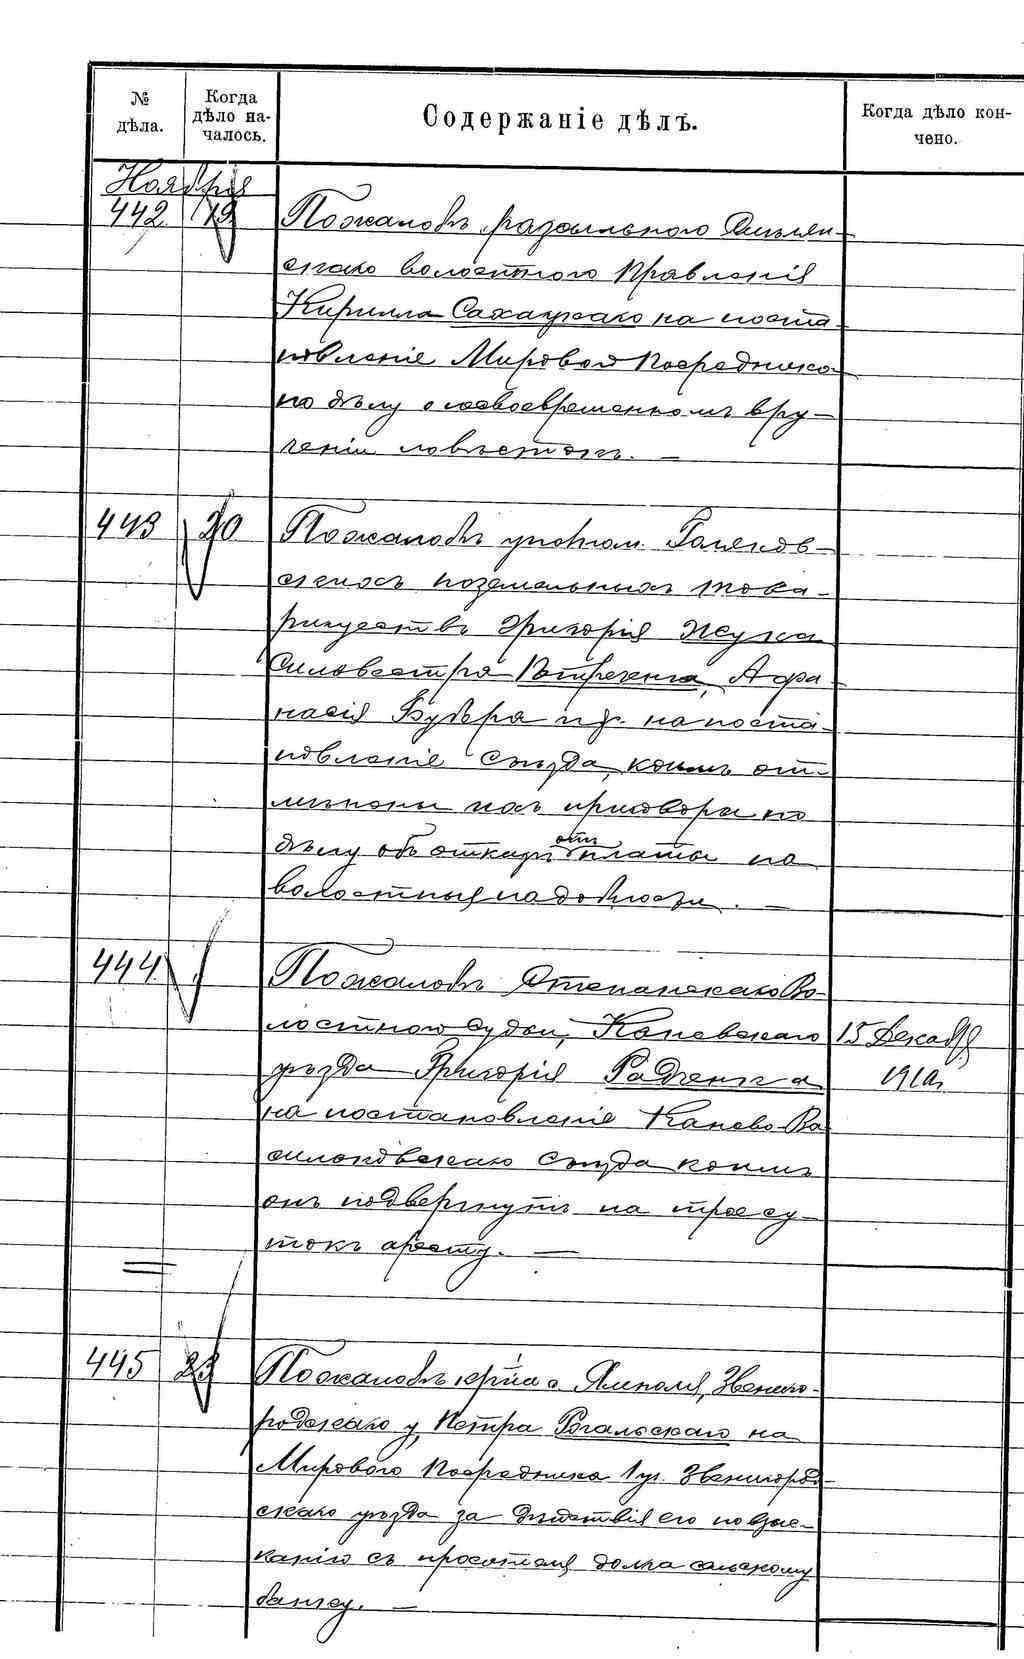 № дѣла.
Когда дѣло началось.
Содержаніе дѣлъ.
Когда дѣло кончено.
Ноября
442 19 По жалобѣ разсыльного
скаго волостного Правленія
Кирилла на поста-
новленіе Мирового Посредника
по дѣлу о несвоевременномъ вру-
ченіи повѣстокъ. —
443 20 По жалобѣ
скихъ поземельныхъ това-
риществъ Григорія Жука
Силовестра Петренка, Афа-
насія и др. на поста-
новленіе Съѣзда, коимъ от-
мѣнены ихъ приговоры по
дѣлу объ отказѣ отъ платы на
волостныя надобности. —
444 По жалобѣ Степанскаго Во-
лостного Судьи, Каневскаго 15 Декабря
уѣзда Григорія Радченка 1910г.
на постановленіе Канево-Ва-
сильковскаго Съѣзда коимъ
онъ подвергнутъ на трое су-
токъ аресту. —
445 23 По жалобѣ кр-на с. Ямполя, Звениго-
родскаго у, Петра Рогальскаго на
Мирового Посредника 1 уч. Звенигород-
скаго уѣзда за дѣйствія его по взыс-
канію съ просителя долга сельскому
банку. —